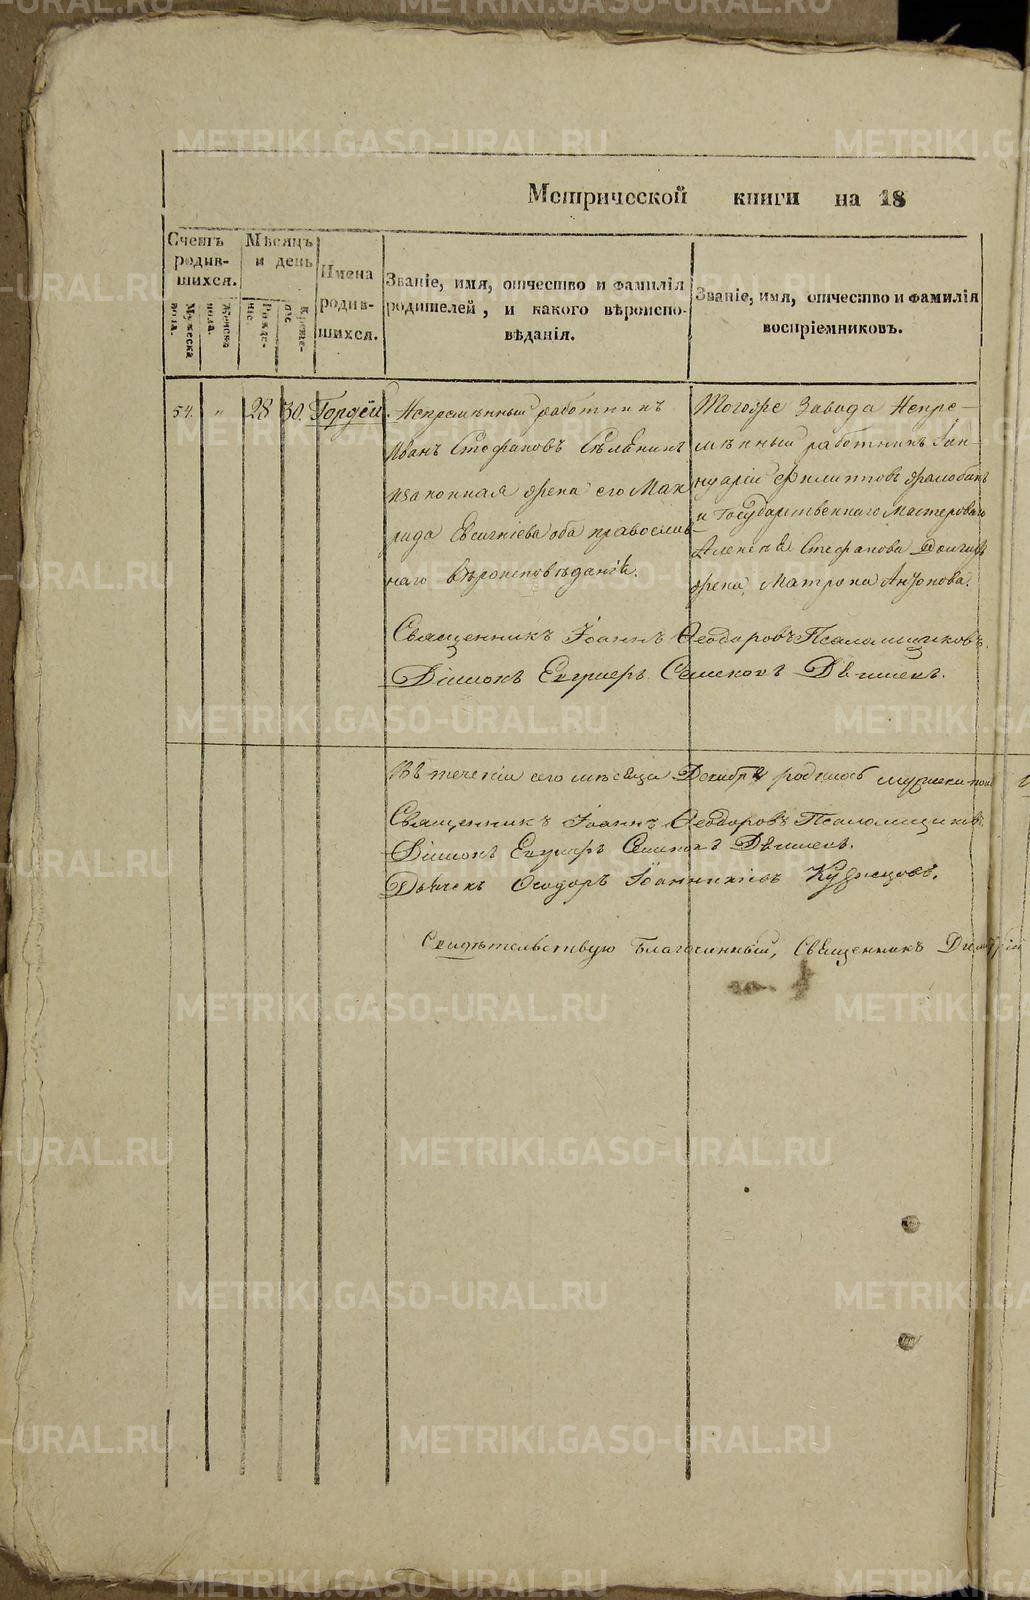 Метрической книги на 18
Счетъ родив-шихся.
Мужеска пола.
Женска пола.
Мѣсяцъ и день
Рожде-ніе
Креще-ніе
Имена родив-шихся.
Званіе, имя, отчество и фамилія
родителей, и какого вѣроиспо-
вѣданія.
Званіе, имя, отчество и фамилія
воспріемниковъ.
54. " 28 30. Гордѣй.
Непремѣнный работникъ
Иванъ Стефановъ
изаконная жена его Мак
рида Евсигніева оба православ-
наго вѣроисповѣданія.
Тогоже Завода Непре-
мѣнный работникъ Іан-
нуарій Филиповъ
и Государственнаго Мастероваго
Алексѣя Стефанова
жена, Матрона Антонова.
Священникъ Іоаннъ Ѳеодоровъ Псаломщиковъ.
Діаконъ
Въ теченіи сего мѣсяца Декабря родилось мужеска пол
Священникъ Іоаннъ Ѳеодоровъ Псаломщиковъ.
Діаконъ
Дьячекъ Ѳеодоръ Іоанникіевъ Кузнецовъ.
Свидѣтельствую Благочинный, Священникъ Димитрій
METRIKI.GASO-URAL.RU